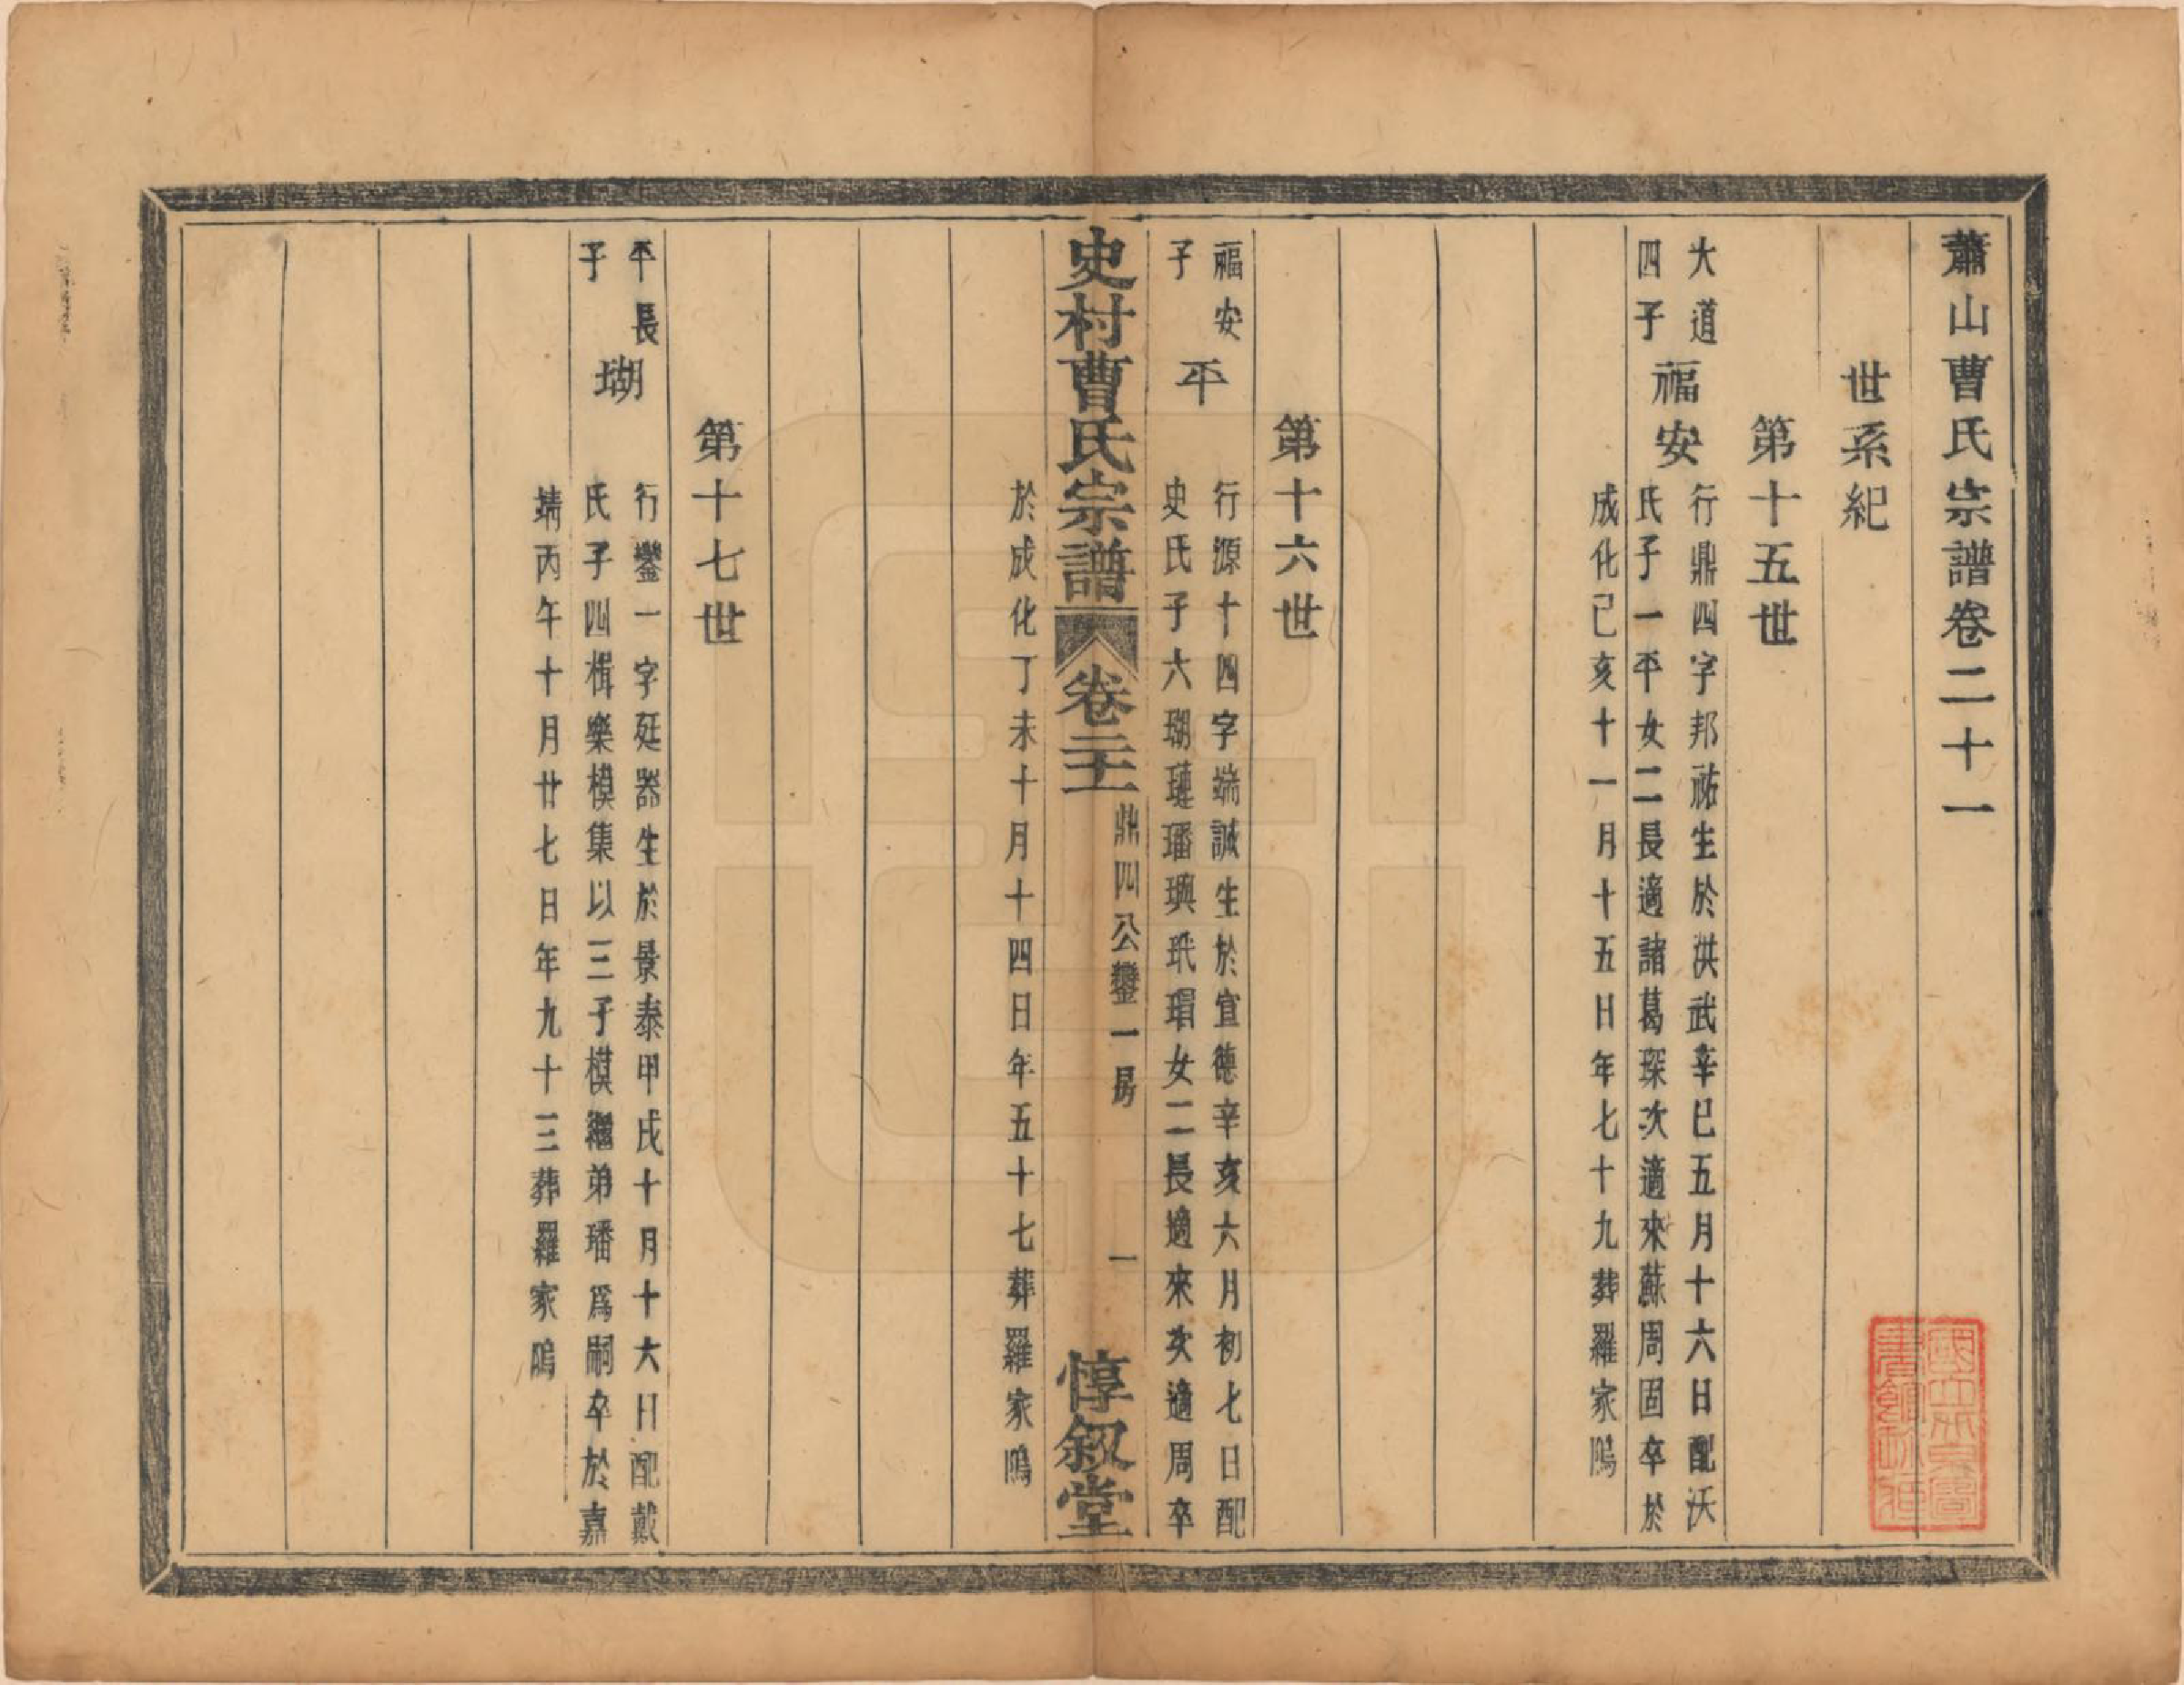 蕭山曹氏宗譜卷二十一
世系紀
第十五世
大道
四子
福安
行鼎四字邦祐生於洪武辛巳五月十六日配沃
氏子一平女二長適諸葛琛次適來蘇周固卒於
成化己亥十一月十五日年七十九葬羅家隖
第十六世
福安
子
平
行源十四字端誠生於宣德辛亥六月初七日配
史氏子六瑚璉璠璵玳瑁女二長適來次適周卒
於成化丁未十月十四日年五十七葬羅家隖
史村曹氏宗譜 卷二十一 鼎四公鑾一房 一 惇叙堂
第十七世
平長
子
瑚
行鑾一字廷器生於景泰甲戌十月十六日配戴
氏子四楫樂模集以三子模繼弟璠爲嗣卒於嘉
靖丙午十月廿七日年九十三葬羅家隖